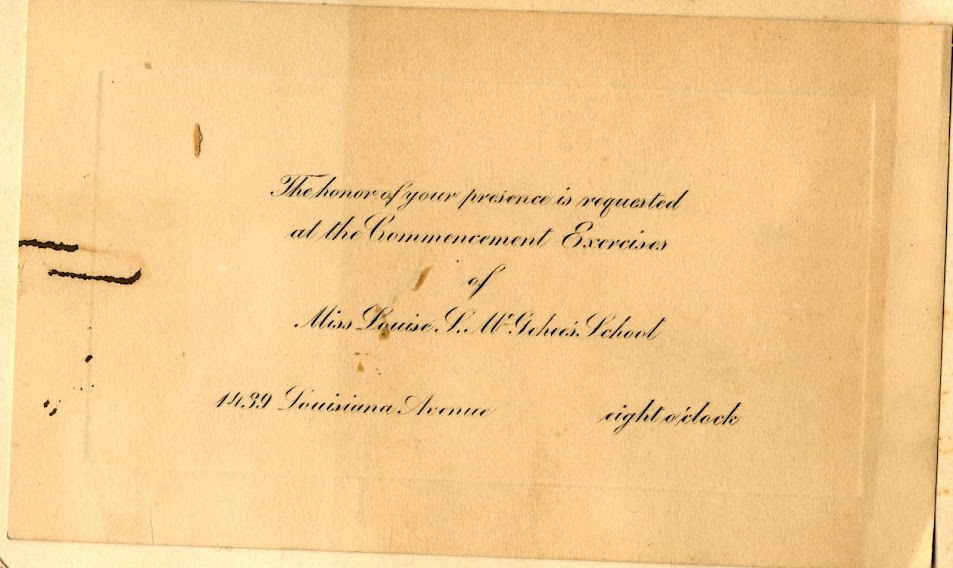 The honor of your presence is requested
at the Commencement Exercises
of
Miss Louise S. McGehee's School
1439 Louisiana Avenue eight o'clock